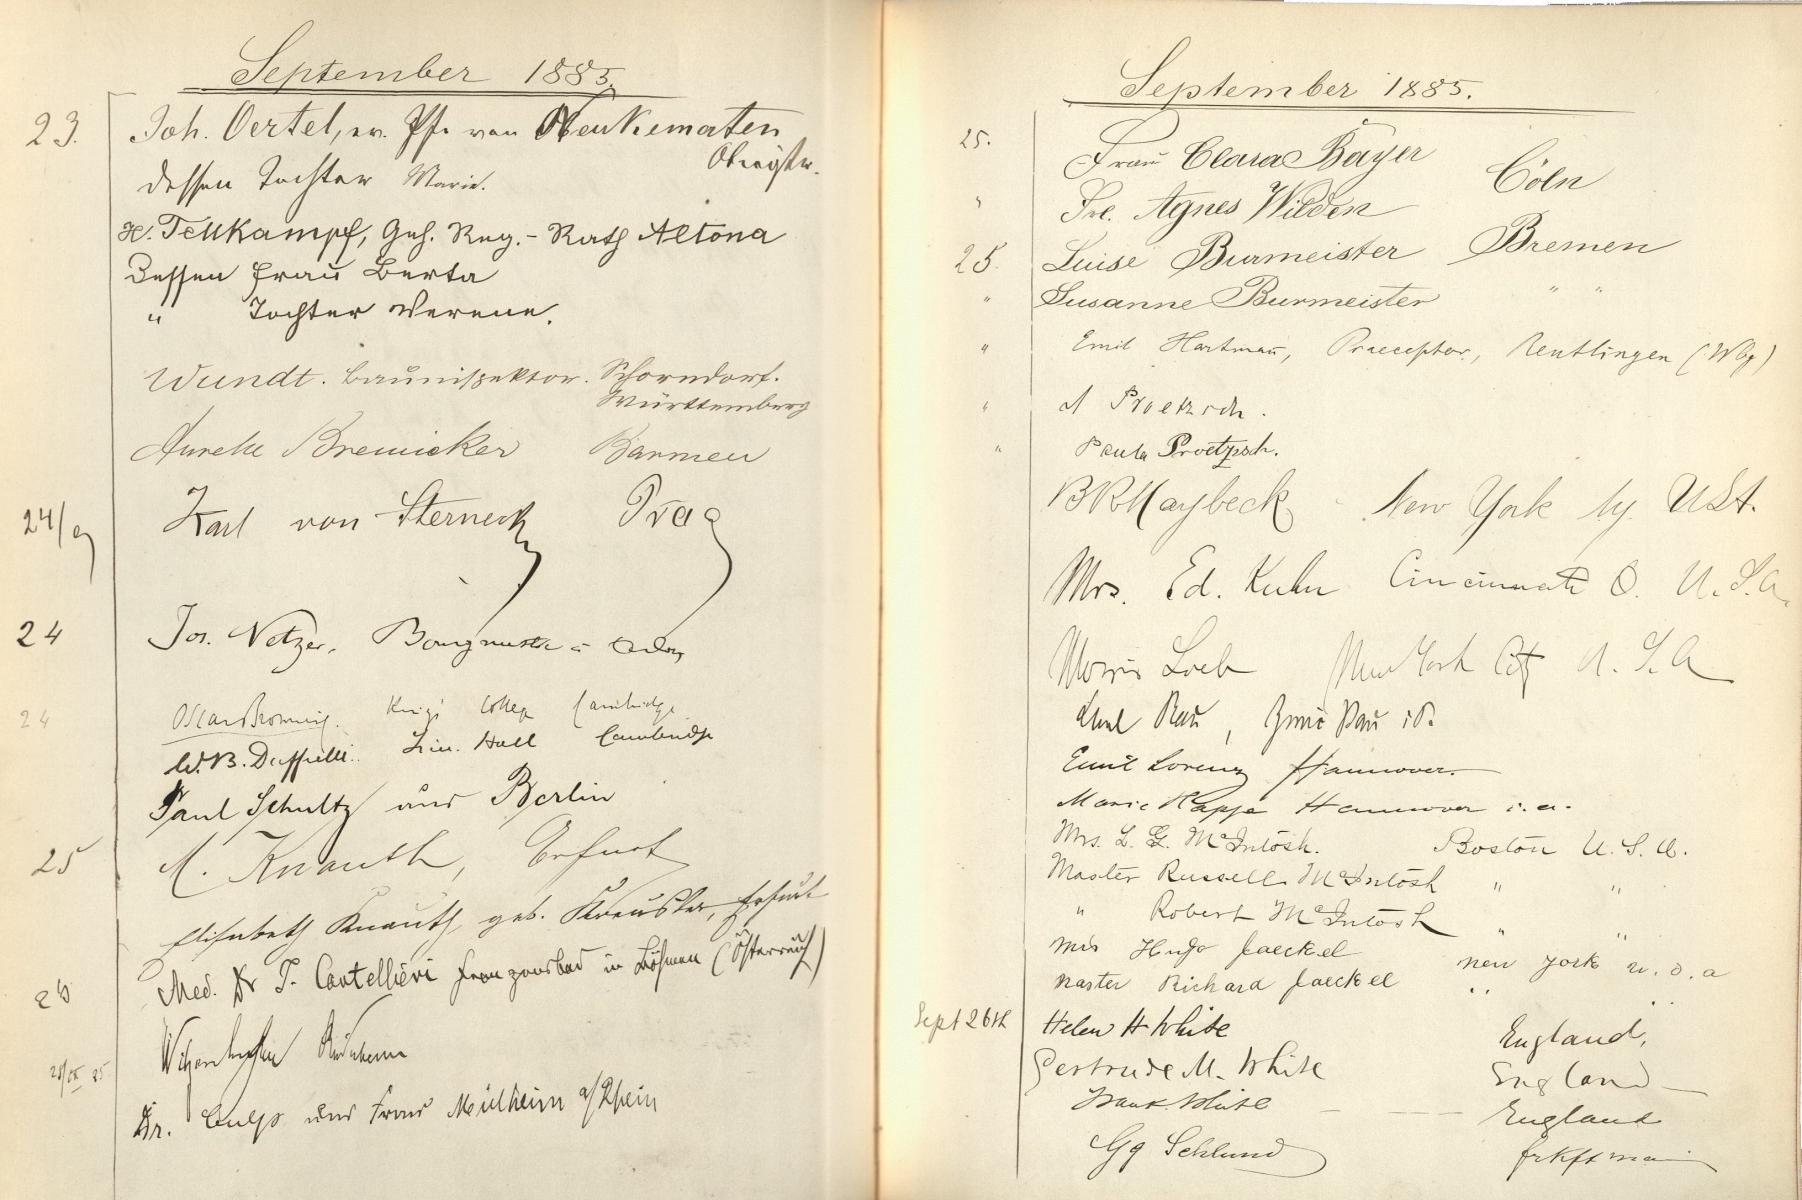 September 1885.
23. Joh. Oertel, ev. Pfr von Neukematen
Oberöstr.
dessen Tochter Marie.
H. Tellkampf, Geh. Reg.-Rath Altona
Dessen Frau Berta
" Tochter Verene.
Wundt. Bauinspektor. Schorndorf.
Württemberg
Aurelie Bremicker Barmen
24/9 Karl von Sterneck Prag
24 Jos. Netzer,
24 Oscar Browning. King's College Cambridge
W. B. Duffield. Trin. Hall Cambridge
Paul Schultz aus Berlin
25 M. Knauth, Erfurt
Elisabeth Knauth geb. Kreusler, Erfurt
25 Med. Dr T. Cartellieri Franzensbad in Böhmen (Österreich)
Dr. Culp und Frau Mülheim a/Rhein
September 1885.
25. Frau Clara Bayer Cöln
" Frl. Agnes Wilden
25. Luise Burmeister Bremen
" Susanne Burmeister " "
" Emil Hartmann, Praeceptor, Reutlingen (Wbg)
" A Proetzsch.
" Paula Proetzsch.
B R Maybeck New York Ny. USA.
Mrs. Ed. Kuhn Cincinnati O. U.S.A.
Morris Loeb New York City U.S.A
Emil Lorenz Hannover.
Marie Kappe Hannover
Mrs. L. G. McIntosh. Boston U.S.A.
Master Russell McIntosh " "
" Robert McIntosh " "
Mrs Hugo Jaeckel new york u.s.a
Master Richard Jaeckel " "
Sept 26th Helen H White England,
Gertrude M. White England
Frank White England
Gg Schlund Frkft Main